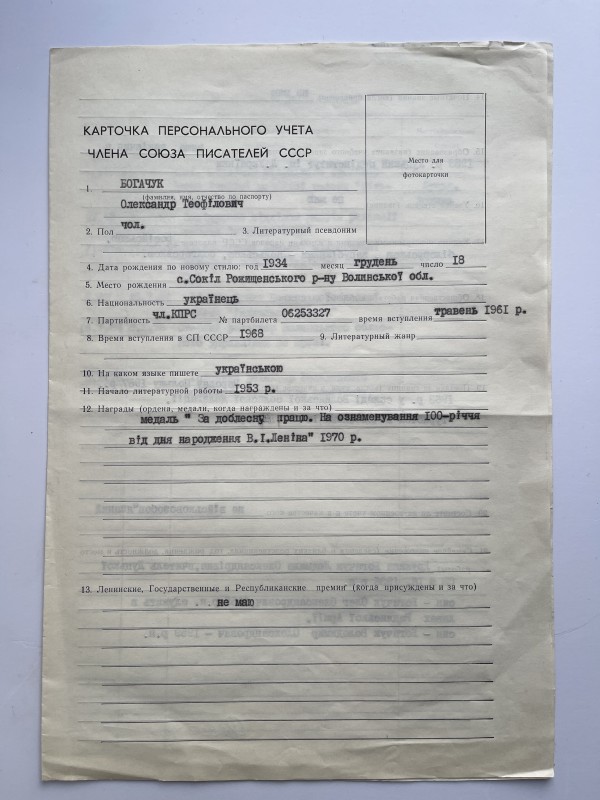 КАРТОЧКА ПЕРСОНАЛЬНОГО УЧЕТА
ЧЛЕНА СОЮЗА ПИСАТЕЛЕЙ СССР
Место для
фотокарточки
1. БОГАЧУК
(фамилия, имя, отчество по паспорту)
Олександр Теофілович
2. Пол чол. 3. Литературный псевдоним
4. Дата рождения по новому стилю: год 1934 месяц грудень число 18
5. Место рождения с.Сокіл Рожищенського р-ну Волинської обл.
6. Национальность українець
7. Партийность чл.КПРС № партбилета 06253327 время вступления травень 1961 р.
8. Время вступления в СП СССР 1968 9. Литературный жанр
10. На каком языке пишете українською
11. Начало литературной работы 1953 р.
12. Награды (ордена, медали, когда награждены и за что)
медаль " За доблесну працю. На ознаменування 100-річчя
від дня народження В.І.Леніна" 1970 р.
13. Ленинские, Государственные и Республиканские премии (когда присуждены и за что)
не маю